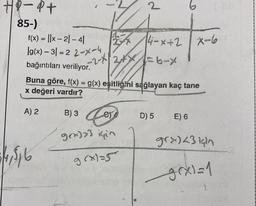 +ϕ-ϕ+
-2 2 6
85-)
f(x) = ||x – 2| – 4| 4-x+2 x-6
|g(x) – 3| = 2 2-x-4
-2-x 2+x =6-x
bağıntıları veriliyor.
Buna göre, f(x) = g(x) eşitliğini sağlayan kaç tane
x değeri vardır?
A) 2 B) 3 D) 5 E) 6
g(x)>3 için g(x)<3 için
g(x)=5 g(x)=1